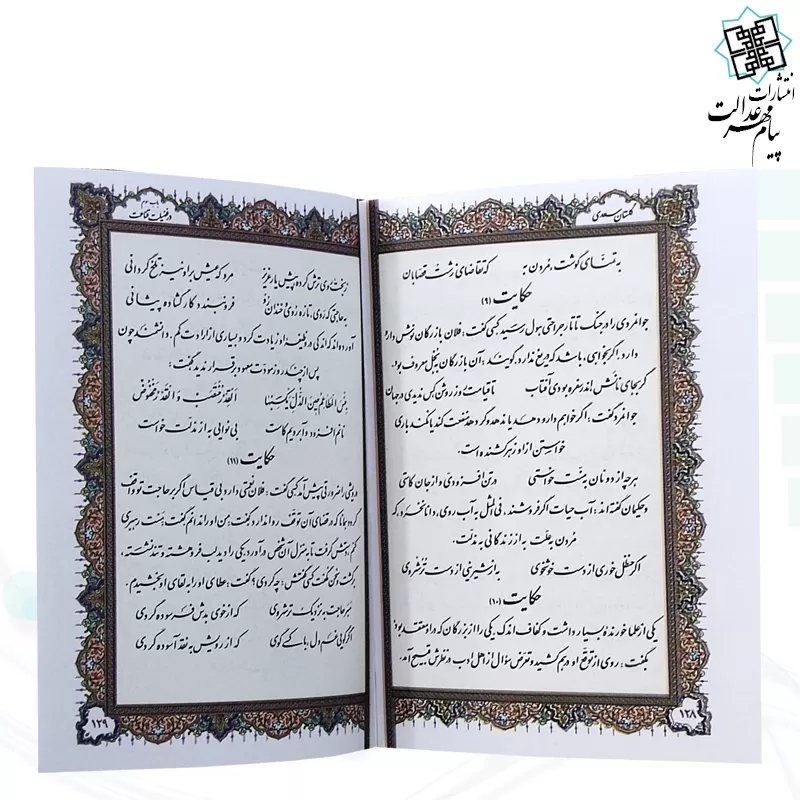 انتشارات
پیام مهر عدالت
گلستان سعدی
به تمنّای گوشت، مُردن به که تقاضای زشت قصّابان
حکایت (۹)
جوانمردی را در جنگ تاتار جراحتی هول رسید کسی گفت: فلان بازرگان نوش دارو
دارد. اگر بخواهی، باشد که دریغ ندارد. گویند: آن بازرگان به بُخل معروف بود.
گر بجای نانش اندر سفره بودی آفتاب تا قیامت روز روشن کس ندیدی در جهان
جوانمرد گفت: اگر خواهم دارو دهد یا ندهد وگر دهد منفعت کند یا نکند. باری
خواستن از او زهر کشنده است.
هر چه از دونان به منّت خواستی در تن افزودی و از جان کاستی
و حکیمان گفته‌اند: آب حیات اگر فروشند، فی‌المثل به آب روی، دانا نخرد، که
مُردن به علّت به از زندگانی به مذلّت.
اگر حنظل خوری از دست خوشخوی به از شیرینی از دست ترشروی
حکایت (۱۰)
یکی از علما خورنده بسیار داشت و کفاف اندک یکی را از بزرگان که در او معتقد بود
بگفت: روی از توقّع او درهم کشید و تعرّض سؤال از اهل ادب در نظرش قبیح آمد.
۱۲۸
باب سوم
در فضیلت قناعت
ز بخت روی ترش کرده پیش یار عزیز مرو که عیش بر او نیز تلخ گردانی
به حاجتی که روی، تازه روی و خندان رُو فرو نبندد کار گشاده پیشانی
آورده‌اند که اندکی در وظیفه او زیادت کرد و بسیاری از ارادت کم. دانشمند چون
پس از چند روز مودّت معهود برقرار ندید گفت:
بِئسَ المَطاعِمُ حینَ الذُّلِّ یَکسِبُها اَلقِدرُ مُنتَصَبٌ وَ القَدرُ مَخفُوضٌ
نانم افزود و آبرویم کاست بی نوایی به از مذلّت خواست
حکایت (۱۱)
درویشی را ضرورتی پیش آمد کسی گفت: فلان نعمتی دارد بی قیاس اگر بر حاجت تو واقف
گردد همانا که در قضای آن توقّف روا ندارد گفت: من او را ندانم گفت: منت رهبری
کنم. دستش گرفت تا به منزل آن شخص درآورد. یکی را دید لب فروهشته و تند نشسته،
برگشت و سخن نگفت کسی گفتش: چه کردی؟ گفت: عطای او را به لقای او بخشیدم.
مبر حاجت به نزدیک ترشروی که از خوی بدش فرسوده گردی
اگر گویی غم دل با کسی گوی که از رویش به نقد آسوده گردی
۱۲۹